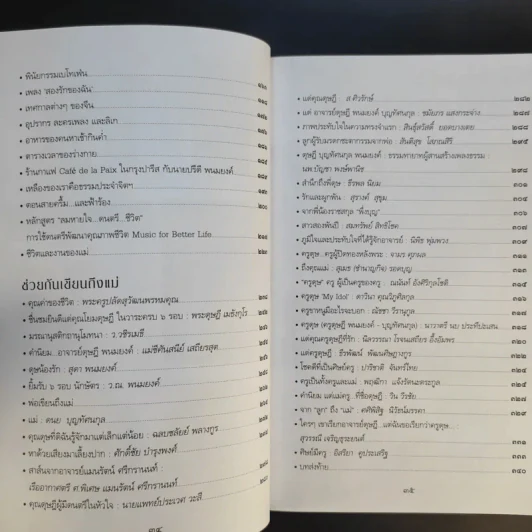 • พินัยกรรมเบโทเฟน
• เพลง 'สองรักของฉัน'
• เทศกาลต่างๆ ของจีน
• อุปรากร ละครเพลง และลิเก
• อาหารของคนหาเช้ากินค่ำ
• ตารางเวลาของร่างกาย
• ร้านกาแฟ Café de la Paix ในกรุงปารีส กับนายปรีดี พนมยงค์
• เหลืองของเราคือธรรมประจำจิตฯ
• ตอนสายครึ้ม.. และฟ้าร้อง
• หลักสูตร "ลมหายใจ..ดนตรี..ชีวิต"
การใช้ดนตรีพัฒนาคุณภาพชีวิต Music for Better Life
• ชีวิตและงานของแม่
ช่วยกันเขียนถึงแม่
• คุณค่าของชีวิต : พระครูปลัดสุวัฒนพรหมคุณ
• ชื่นชมยินดีแด่คุณโยมดุษฎี ในวาระครบ ๖ รอบ : พระดุษฎี เมธังกุโร
• มรณานุสติกถานุโมทนา : ว.วชิรเมธี
• คำนิยม..อาจารย์ดุษฎี พนมยงค์ : แม่ชีศันสนีย์ เสถียรสุต
• ดุษน้องรัก : สุดา พนมยงค์
• ยิ้มรับ ๖ รอบ นักษัตร : วาณี พนมยงค์
• พ่อเขียนถึงแม่
• แม่ : ดนย บุญทัศนกุล
• คุณดุษฎีที่ดิฉันรู้จักมาแต่เล็กแต่น้อย : ฉลบชลัยย์ พลางกูร
• หาด้วยเสียงมาเลี้ยงปาก : ศักดิ์ชัย บำรุงพงศ์
• สาส์นจากอาจารย์แมนรัตน์ ศรีกรานนท์
เรืออากาศตรี ศ.พิเศษ แมนรัตน์ ศรีกรานนท์
• คุณดุษฎีผู้มีดนตรีในหัวใจ : นายแพทย์ประเวศ วะสี
๓๔
• แด่คุณดุษฎี ส.ศิวรักษ์ ๒๘๒
• แด่ อาจารย์ดุษฎี พนมยงค์ บุญทัศนกุล : ชมัยภร แสงกระจ่าง ๒๘๗
• ภาพประทับใจในความทรงจำแรก : สินธุ์สวัสดิ์ ยอดบางเตย
• ลูกผู้รับมรดกชะตากรรมจากพ่อ สันติสุข โสภณสิริ ๒๙๕
• ดุษฎี บุญทัศนกุล พนมยงค์ : ธรรมทายาทผู้สานสร้างเพลงธรรม :
นพ.บัญชา พงษ์พานิช ๒๙๘
• สำนึกถึงพี่ดุษ : ธีรพล นิยม
• รักและผูกพัน : สุรางค์ สุขุม
• จากพี่น้องราชสกุล "พึ่งบุญ"
• สาวสองพันปี : สมทรัพย์ สิทธิโชค
• ภูมิใจและประทับใจที่ได้รู้จักอาจารย์ : นิพิธ พุ่มพวง
• ครูดุษ..ครูผู้ปิดทองหลังพระ : จามร ศุภผล
• ถึงคุณแม่ : สุเมธ (ชำนาญกิจ) รอดบุญ
• "ครูดุษ" ครู ผู้เป็นครูของครู : ณนันท์ อังศิริกุลโชติ
• ครูดุษ 'My Idol' : ดาวินา คุณวิภูศิลกุล
• ครูขาหนูมีอะไรจะบอก : ณัชชา วีรานุกูล
• ครูดุษ (ครูดุษฎี พนมยงค์ - บุญทัศนกุล) : นาวาตรี นบ ประทีปะเสน
• แด่คุณครูดุษฎีที่รัก : นิลวรรณา โรจนเสถียร อึ้งอัมพร
• แด่ครูดุษฎี : ธีรพัฒน์ พัฒนดิษฎางกูร
• โชคดีที่เป็นศิษย์ครู : ปาริชาติ จันทร์ไทย
• ครูเป็นทั้งครูและแม่ : พฤฒิภา แจ้งรัตนตระกูล
• คำนิยม แด่แม่ครู..ที่ชื่อดุษฎี : วิน วีรชัย
• จาก "ลูก" ถึง "แม่" : ศศิพิสิฐ นิวัธน์มรรคา
• ใครๆ เขาเรียกอาจารย์ดุษฎี ...แต่ฉันขอเรียกว่าครูดุษ...
สุวรรณี เจริญสุระยนต์ ๓๓๓
• ศิษย์มีครู : อิสริยา คูประเสริฐ ๓๓๘
• บทส่งท้าย ๓๔๐
๓๕